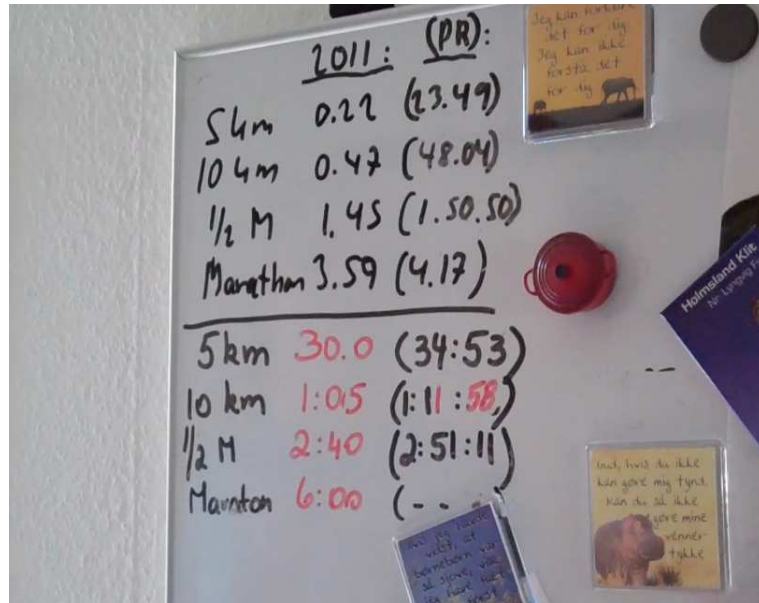 2011: (PR):
5 km 0.22 (23.49)
10 km 0.47 (48.04)
1/2 M 1.45 (1.50.50)
Marathon 3.59 (4.17)
5 km 30.0 (34:53)
10 km 1:05 (1:11:58)
1/2 M 2:40 (2:51:11)
Maraton 6:00 (- - -)
Jeg kan forklare
det for dig
Jeg kan ikke
forstå det
for dig
Holmsland Klit
Nr. Lyngvig
Gud, hvis du ikke
kan gøre mig tynd,
kan du så ikke
gøre mine
venner
tykke
jeg havde
vidst, at
børnebørn var
så sjove, var